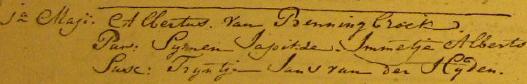 1a Maji: Albertus van Benningbroek.
Par: Symen Japikde. Immetje Alberts
Susc: Tryntje Jans van der Hyden.